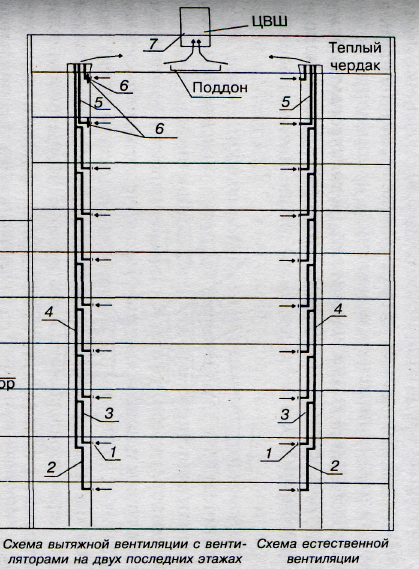 ЦВШ
7
Теплый
чердак
Поддон
5
6
6
5
4
4
ор
3
3
1
1
2
2
Схема вытяжной вентиляции с венти-
ляторами на двух последних этажах
Схема естественной
вентиляции